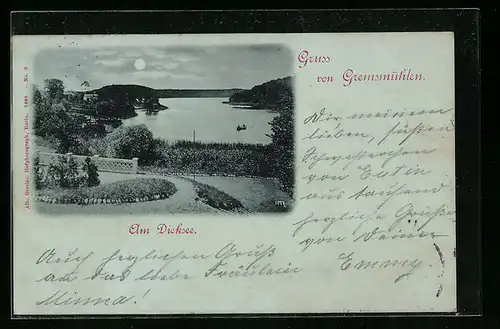 Gruss
von Gremsmühlen.
Alb. Gessler, Hofphotograph, Berlin. 1899 – No. 9
Am Dieksee.
Dir meinem
lieben, süßen
Schwesterchen
von Eutin
aus tausend
herzliche Grüße
von Deiner
Emmy.
Auch herzlichen Gruß
an das liebe Fräulein
Minna!